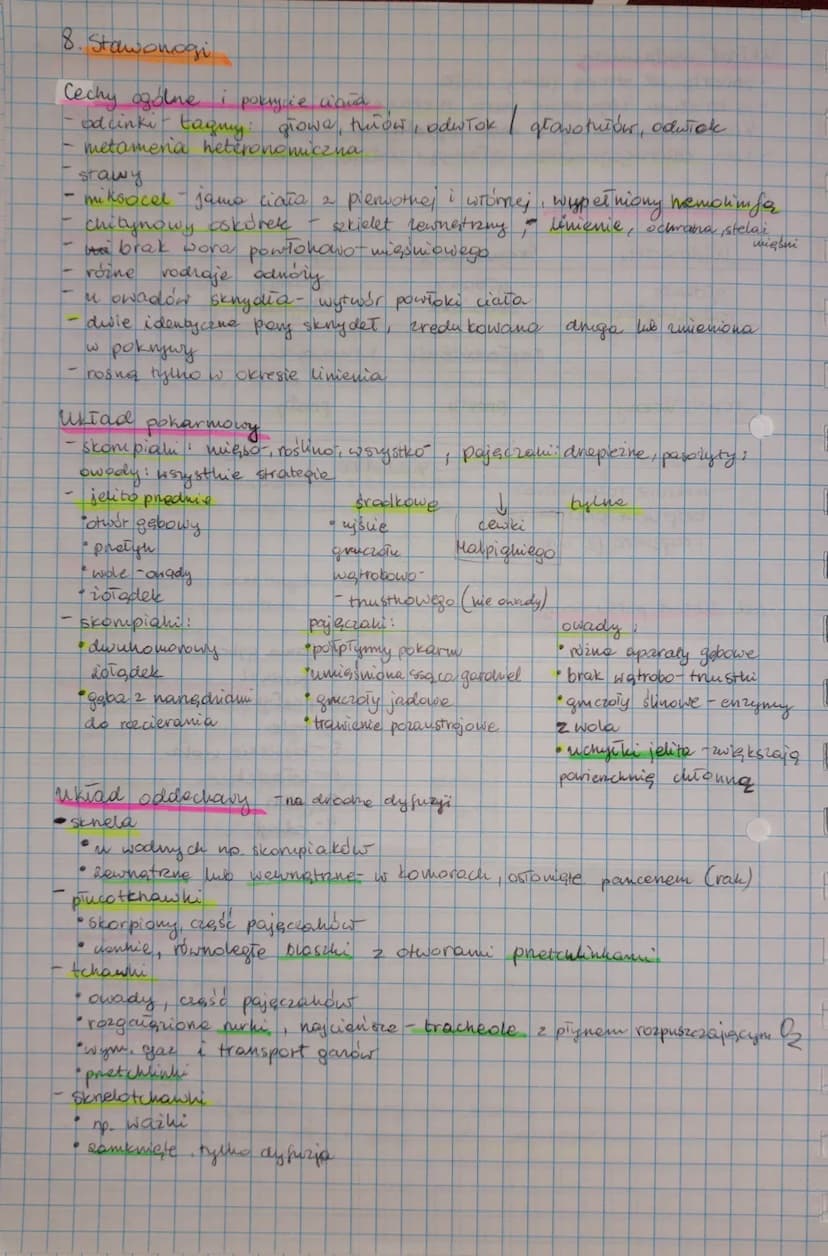 8. Stawonogi
Cechy ogólne i pokrycie ciała
- odcinki - tagmy: głowa, tułów, odwłok / głowotułów, odwłok
- metameria heteronomiczna
- stawy
- miksocel - jama ciała z pierwotnej i wtórnej, wypełniony hemolimfą
- chitynowy oskórek - szkielet zewnętrzny, - linienie, ochrona, stelaż
mięśni
- brak wora powłokowo-mięśniowego
- różne rodzaje odnóży
- u owadów skrzydła - wytwór powłoki ciała
- dwie identyczne pary skrzydeł, zredukowana druga lub zmieniona
w pokrywy
- rosną tylko w okresie linienia
Układ pokarmowy
- skorupiaki: mięso-, roślino-, wszystko-, pajęczaki: drapieżne, pasożyty;
owady: wszystkie strategie
- jelito przednie środkowe ↓ tylne
• otwór gębowy • ujście cewki
• przełyk gruczołu Malpighiego
• wole - owady wątrobowo-
• żołądek - trzustkowego (nie owady)
- skorupiaki: pajęczaki: owady:
• dwukomorowy • półpłynny pokarm • różne aparaty gębowe
żołądek • umięśniona ssąca gardziel • brak wątrobo-trzustki
• gęba z narządami • gruczoły jadowe • gruczoły ślinowe - enzymy
do rozcierania • trawienie pozaustrojowe z wola
• uchyłki jelita - zwiększają
powierzchnię chłonną
Układ oddechowy - na drodze dyfuzji
- skrzela
• u wodnych np. skorupiaków
• zewnętrzne lub wewnętrzne - w komorach, osłonięte pancerzem (rak)
- płucotchawki
• skorpiony, część pajęczaków
• cienkie, równoległe blaszki z otworami przetchlinkami
- tchawki
• owady, część pajęczaków
• rozgałęzione rurki, najcieńsze - tracheole z płynem rozpuszczającym O2
• wym. gaz i transport gazów
• przetchlinki
- skrzelotchawki
• np. ważki
• zamknięte, tylko dyfuzja